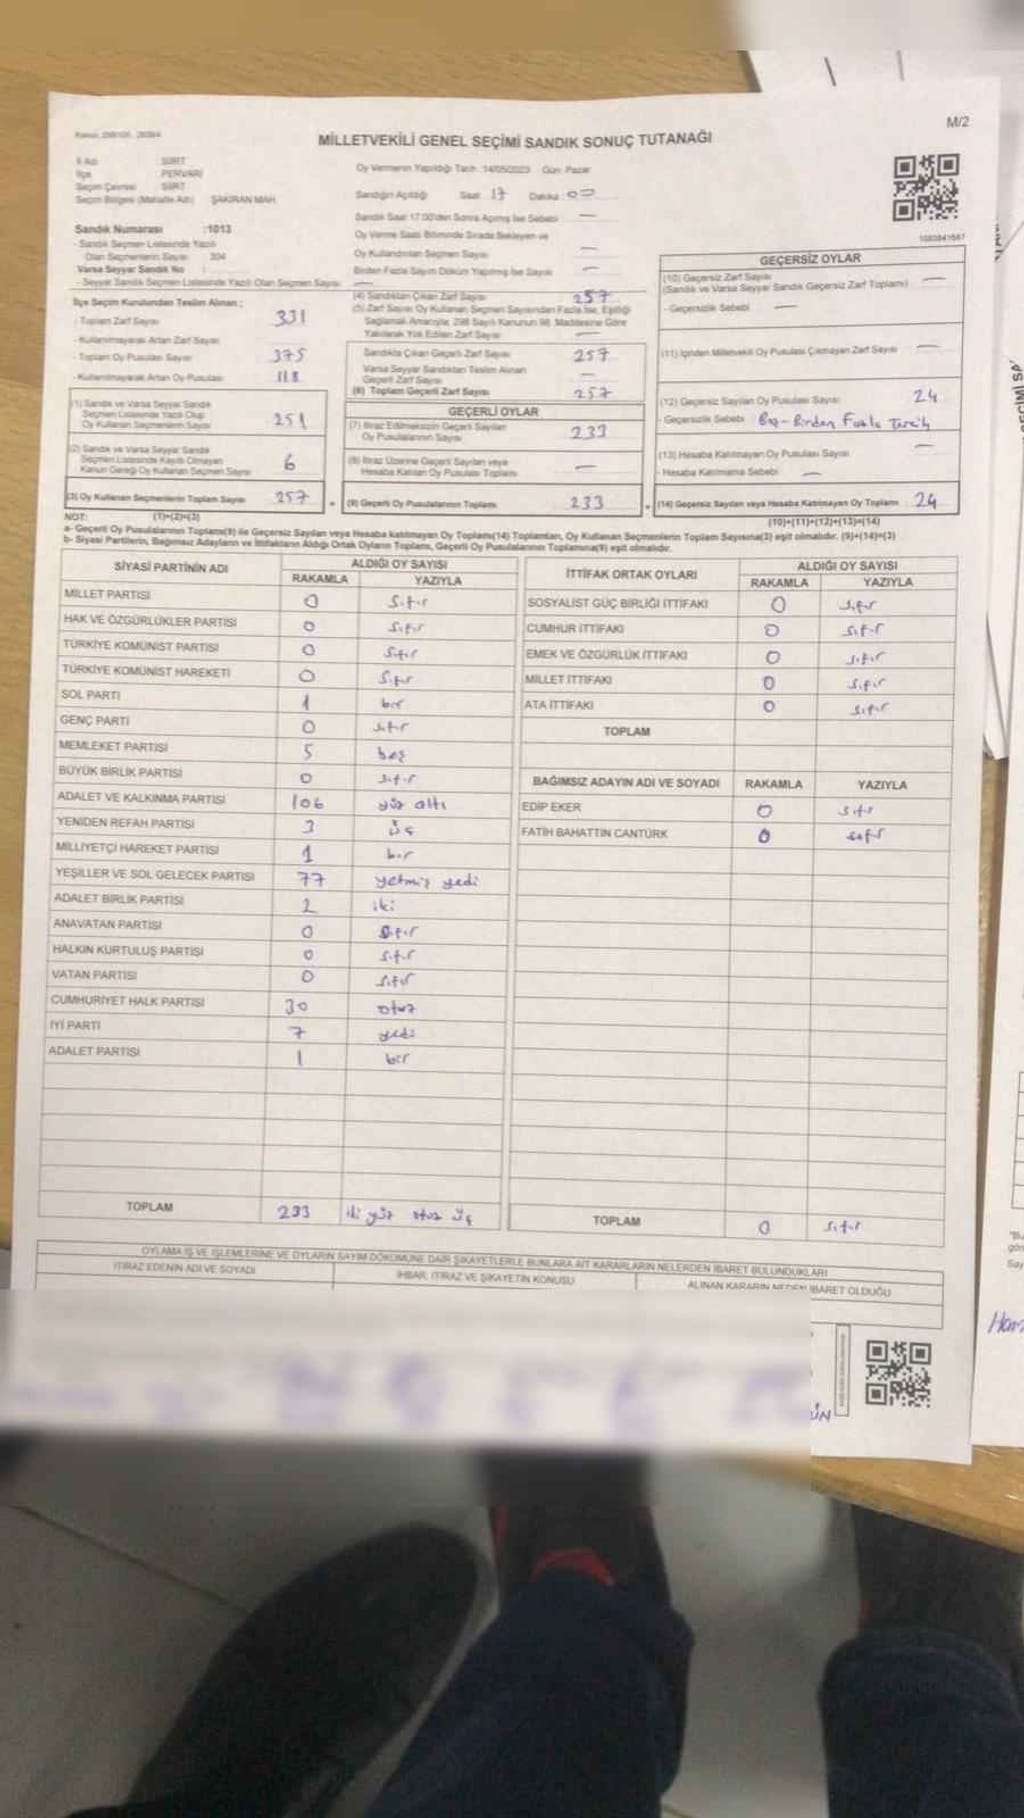 M/2
MİLLETVEKİLİ GENEL SEÇİMİ SANDIK SONUÇ TUTANAĞI
İl Adı SİİRT
İlçe PERVARİ
Seçim Çevresi SİİRT
Seçim Bölgesi (Mahalle Adı) ŞAKİRAN MAH.
Sandık Numarası :1013
- Sandık Seçmen Listesinde Yazılı
Olan Seçmenlerin Sayısı 304
Varsa Seyyar Sandık No :
- Seyyar Sandık Seçmen Listesinde Yazılı Olan Seçmen Sayısı
Oy Vermenin Yapıldığı Tarih :14/05/2023 Gün: Pazar
Sandığın Açıldığı Saat 17 Dakika 00
Sandık Saat 17.00'den Sonra Açılmış İse Sebebi —
Oy Verme Saati Bitiminde Sırada Bekleyen ve
Oy Kullandırılan Seçmen Sayısı —
Birden Fazla Sayım Döküm Yapılmış İse Sayısı —
1083841687
İlçe Seçim Kurulundan Teslim Alınan :
- Toplam Zarf Sayısı 331
- Kullanılmayarak Artan Zarf Sayısı
- Toplam Oy Pusulası Sayısı 375
- Kullanılmayarak Artan Oy Pusulası 118
(1) Sandık ve Varsa Seyyar Sandık
Seçmen Listesinde Yazılı Olup
Oy Kullanan Seçmenlerin Sayısı 251
(2) Sandık ve Varsa Seyyar Sandık
Seçmen Listesinde Kayıtlı Olmayan
Kanun Gereği Oy Kullanan Seçmen Sayısı 6
(3) Oy Kullanan Seçmenlerin Toplam Sayısı 257
(4) Sandıktan Çıkan Zarf Sayısı 257
(5) Zarf Sayısı Oy Kullanan Seçmen Sayısından Fazla İse, Eşitliği
Sağlamak Amacıyla, 298 Sayılı Kanunun 98. Maddesine Göre
Yakılarak Yok Edilen Zarf Sayısı —
Sandıkta Çıkan Geçerli Zarf Sayısı 257
Varsa Seyyar Sandıktan Teslim Alınan
Geçerli Zarf Sayısı —
(6) Toplam Geçerli Zarf Sayısı 257
GEÇERLİ OYLAR
(7) İtiraz Edilmeksizin Geçerli Sayılan
Oy Pusulalarının Sayısı 233
(8) İtiraz Üzerine Geçerli Sayılan veya
Hesaba Katılan Oy Pusulaları Toplamı —
(9) Geçerli Oy Pusulalarının Toplamı 233
GEÇERSİZ OYLAR
(10) Geçersiz Zarf Sayısı
(Sandık ve Varsa Seyyar Sandık Geçersiz Zarf Toplamı) —
- Geçersizlik Sebebi —
(11) İçinden Milletvekili Oy Pusulası Çıkmayan Zarf Sayısı —
(12) Geçersiz Sayılan Oy Pusulası Sayısı 24
- Geçersizlik Sebebi Boş-Birden Fazla Tercih
(13) Hesaba Katılmayan Oy Pusulası Sayısı —
- Hesaba Katılmama Sebebi —
(14) Geçersiz Sayılan veya Hesaba Katılmayan Oy Toplamı 24
NOT: (1)+(2)=(3)
(10)+(11)+(12)+(13)=(14)
a- Geçerli Oy Pusulalarının Toplamı(9) ile Geçersiz Sayılan veya Hesaba katılmayan Oy Toplamı(14) Toplamları, Oy Kullanan Seçmenlerin Toplam Sayısına(3) eşit olmalıdır. (9)+(14)=(3)
b- Siyasi Partilerin, Bağımsız Adayların ve İttifakların Aldığı Ortak Oyların Toplamı, Geçerli Oy Pusulalarının Toplamına(9) eşit olmalıdır.
SİYASİ PARTİNİN ADI ALDIĞI OY SAYISI
RAKAMLA YAZIYLA
MİLLET PARTİSİ 0 Sıfır
HAK VE ÖZGÜRLÜKLER PARTİSİ 0 Sıfır
TÜRKİYE KOMÜNİST PARTİSİ 0 Sıfır
TÜRKİYE KOMÜNİST HAREKETİ 0 Sıfır
SOL PARTİ 1 bir
GENÇ PARTİ 0 sıfır
MEMLEKET PARTİSİ 5 beş
BÜYÜK BİRLİK PARTİSİ 0 sıfır
ADALET VE KALKINMA PARTİSİ 106 yüz altı
YENİDEN REFAH PARTİSİ 3 üç
MİLLİYETÇİ HAREKET PARTİSİ 1 bir
YEŞİLLER VE SOL GELECEK PARTİSİ 77 yetmiş yedi
ADALET BİRLİK PARTİSİ 2 iki
ANAVATAN PARTİSİ 0 sıfır
HALKIN KURTULUŞ PARTİSİ 0 sıfır
VATAN PARTİSİ 0 sıfır
CUMHURİYET HALK PARTİSİ 30 otuz
İYİ PARTİ 7 yedi
ADALET PARTİSİ 1 bir
TOPLAM 233 iki yüz otuz üç
İTTİFAK ORTAK OYLARI ALDIĞI OY SAYISI
RAKAMLA YAZIYLA
SOSYALİST GÜÇ BİRLİĞİ İTTİFAKI 0 sıfır
CUMHUR İTTİFAKI 0 sıfır
EMEK VE ÖZGÜRLÜK İTTİFAKI 0 sıfır
MİLLET İTTİFAKI 0 sıfır
ATA İTTİFAKI 0 sıfır
TOPLAM
BAĞIMSIZ ADAYIN ADI VE SOYADI RAKAMLA YAZIYLA
EDİP EKER 0 sıfır
FATİH BAHATTİN CANTÜRK 0 sıfır
TOPLAM 0 sıfır
OYLAMA İŞ VE İŞLEMLERİNE VE OYLARIN SAYIM DÖKÜMÜNE DAİR ŞİKAYETLERLE BUNLARA AİT KARARLARIN NELERDEN İBARET BULUNDUKLARI
İTİRAZ EDENİN ADI VE SOYADI İHBAR, İTİRAZ VE ŞİKAYETİN KONUSU ALINAN KARARIN NEDEN İBARET OLDUĞU